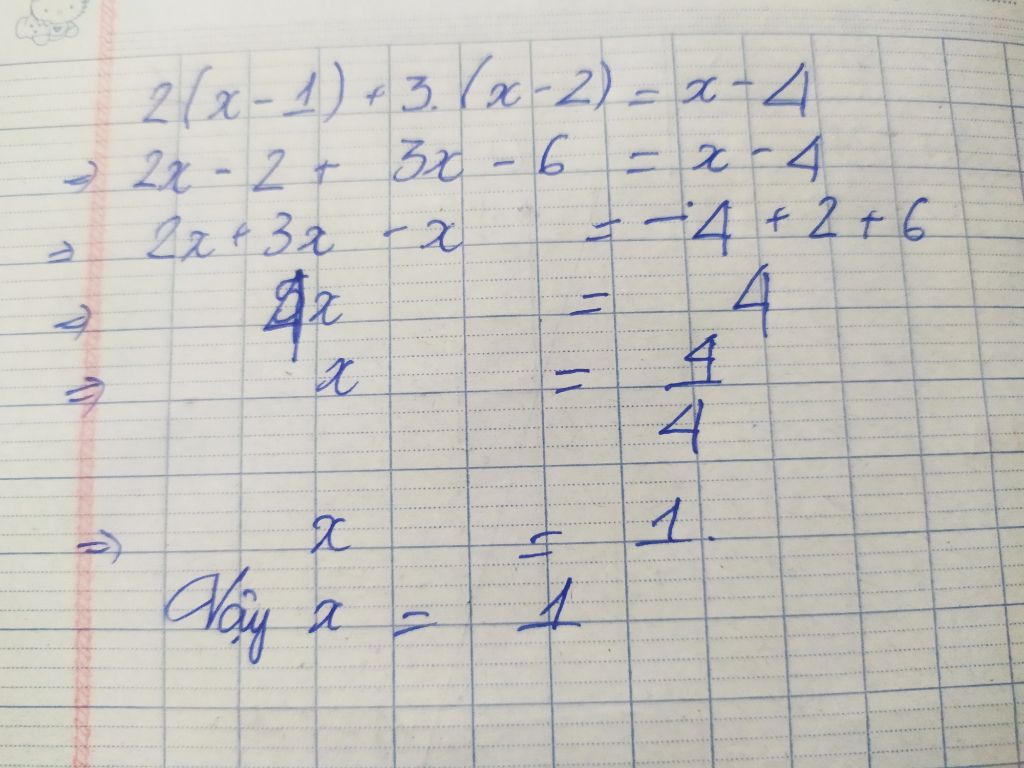 2(x - 1) + 3.(x - 2) = x - 4
⇒ 2x - 2 + 3x - 6 = x - 4
⇒ 2x + 3x - x = -4 + 2 + 6
⇒ 4x = 4
⇒ x = 4/4
⇒ x = 1.
Vậy x = 1